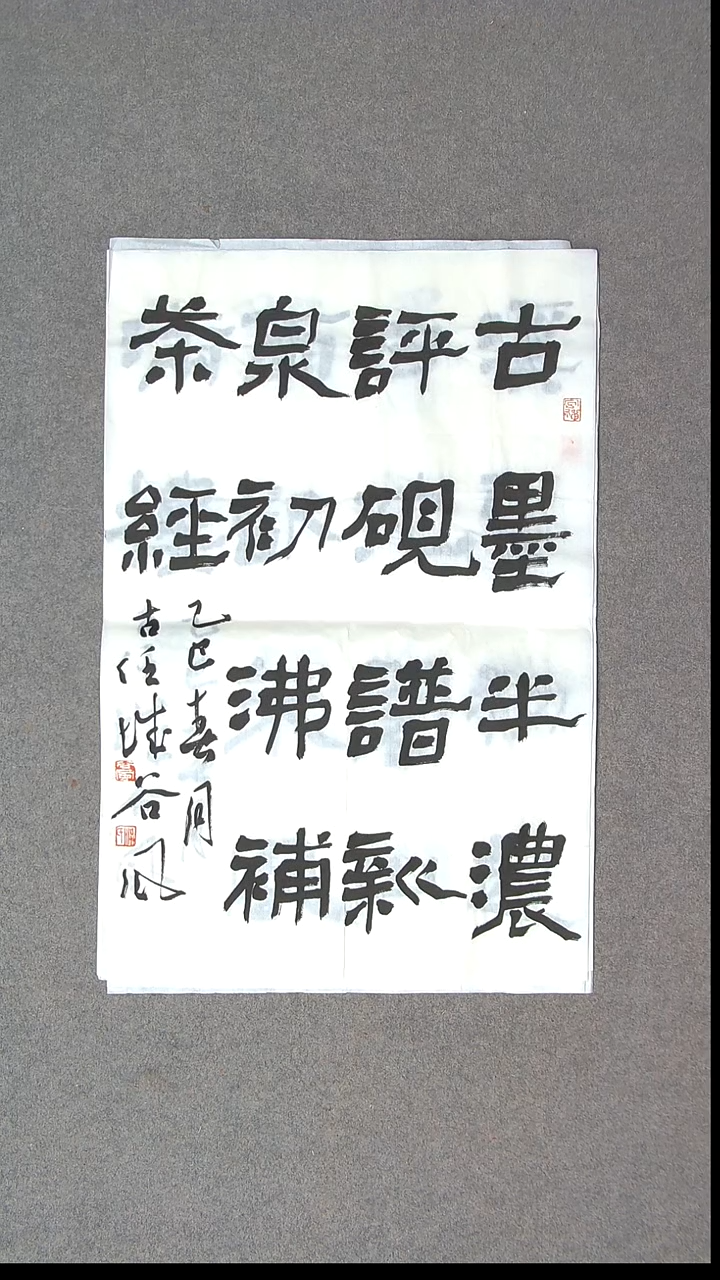 古墨半濃
評硯譜新
泉初沸補
茶經
乙巳春月
古任城谷風